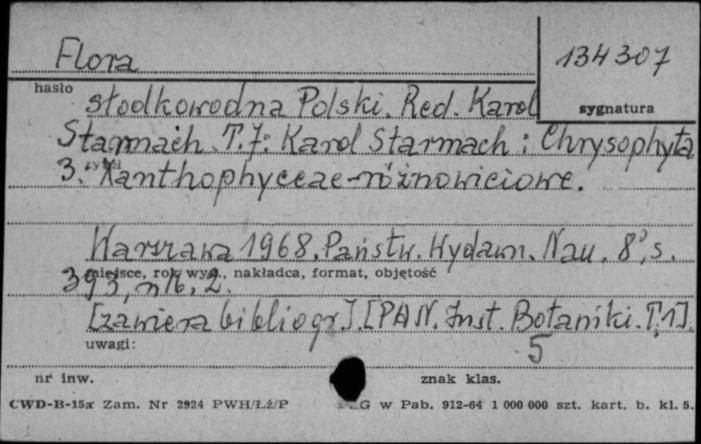 Flora
134307
hasło
sygnatura
słodkowodna Polski. Red. Karol
Starmach. T.7: Karol Starmach: Chrysophyta
3. Xanthophyceae-różnowiciowe.
Warszawa 1968. Państw. Wydawn. Nau. 8°, s.
miejsce, rok wyd., nakładca, format, objętość
393, nlb. 2.
[zawiera bibliogr.]. [PAN. Inst. Botaniki. T.1].
uwagi:
5
nr inw.
znak klas.
CWD-B-15a Zam. Nr 2924 PWH/Łż/P
G w Pab. 912-64 1 000 000 szt. kart. b. kl. 5.